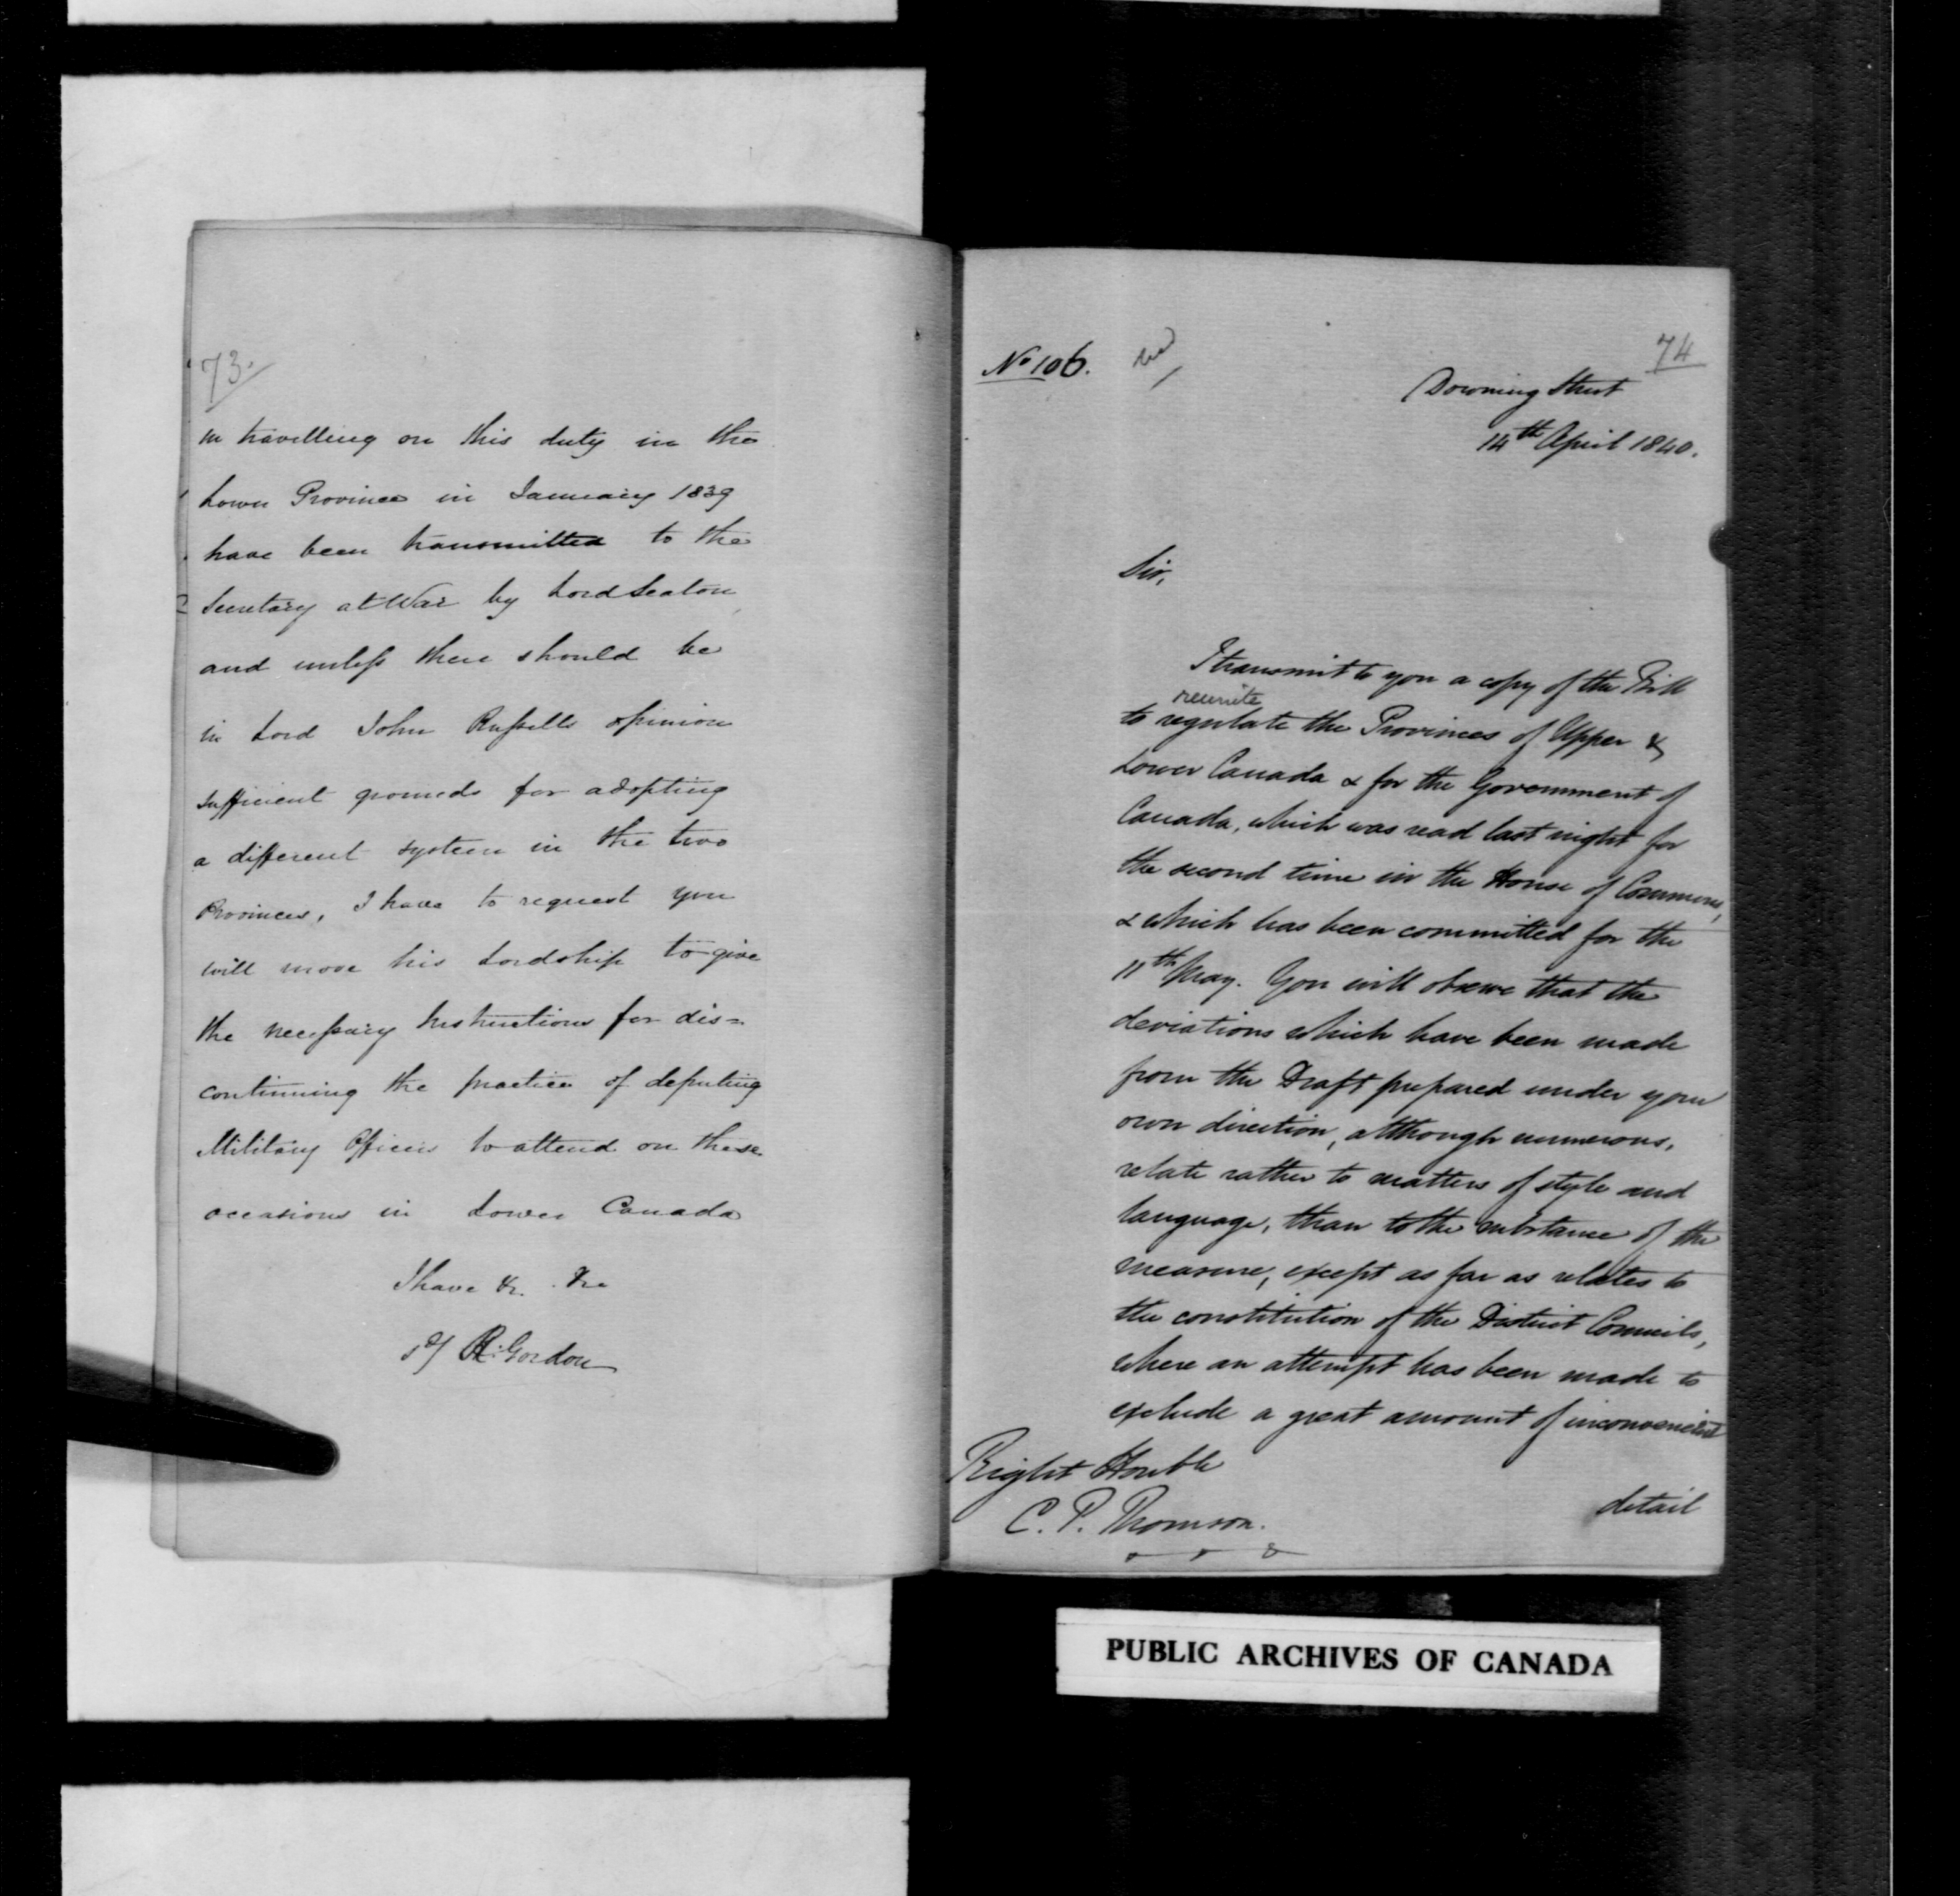 73.
in travelling on this duty in the
Lower Province in January 1839
have been transmitted to the
Secretary at War by Lord Seaton
and unless there should be
in Lord John Russells opinion
sufficient grounds for adopting
a different system in the two
Provinces, I have to request you
will move his Lordship to give
the necessary Instructions for dis=
continuing the practice of deputing
Military Officers to attend on these
occasions in Lower Canada
I have &c. &c
sd/ R: Gordon
No 106.
74
Downing Street
14th April 1840.
Sir,
I transmit to you a copy of the Bill
reunite
to regulate the Provinces of Upper &
Lower Canada & for the Government of
Canada, which was read last night for
the second time in the House of Commons,
& which has been committed for the
11th May. You will observe that the
deviations which have been made
from the Draft prepared under your
own direction, although numerous,
relate rather to matters of style and
language, than to the substance of the
measure, except as far as relates to
the constitution of the District Councils,
where an attempt has been made to
exclude a great amount of inconvenient
Right Honble
C. P. Thomson.
detail
PUBLIC ARCHIVES OF CANADA